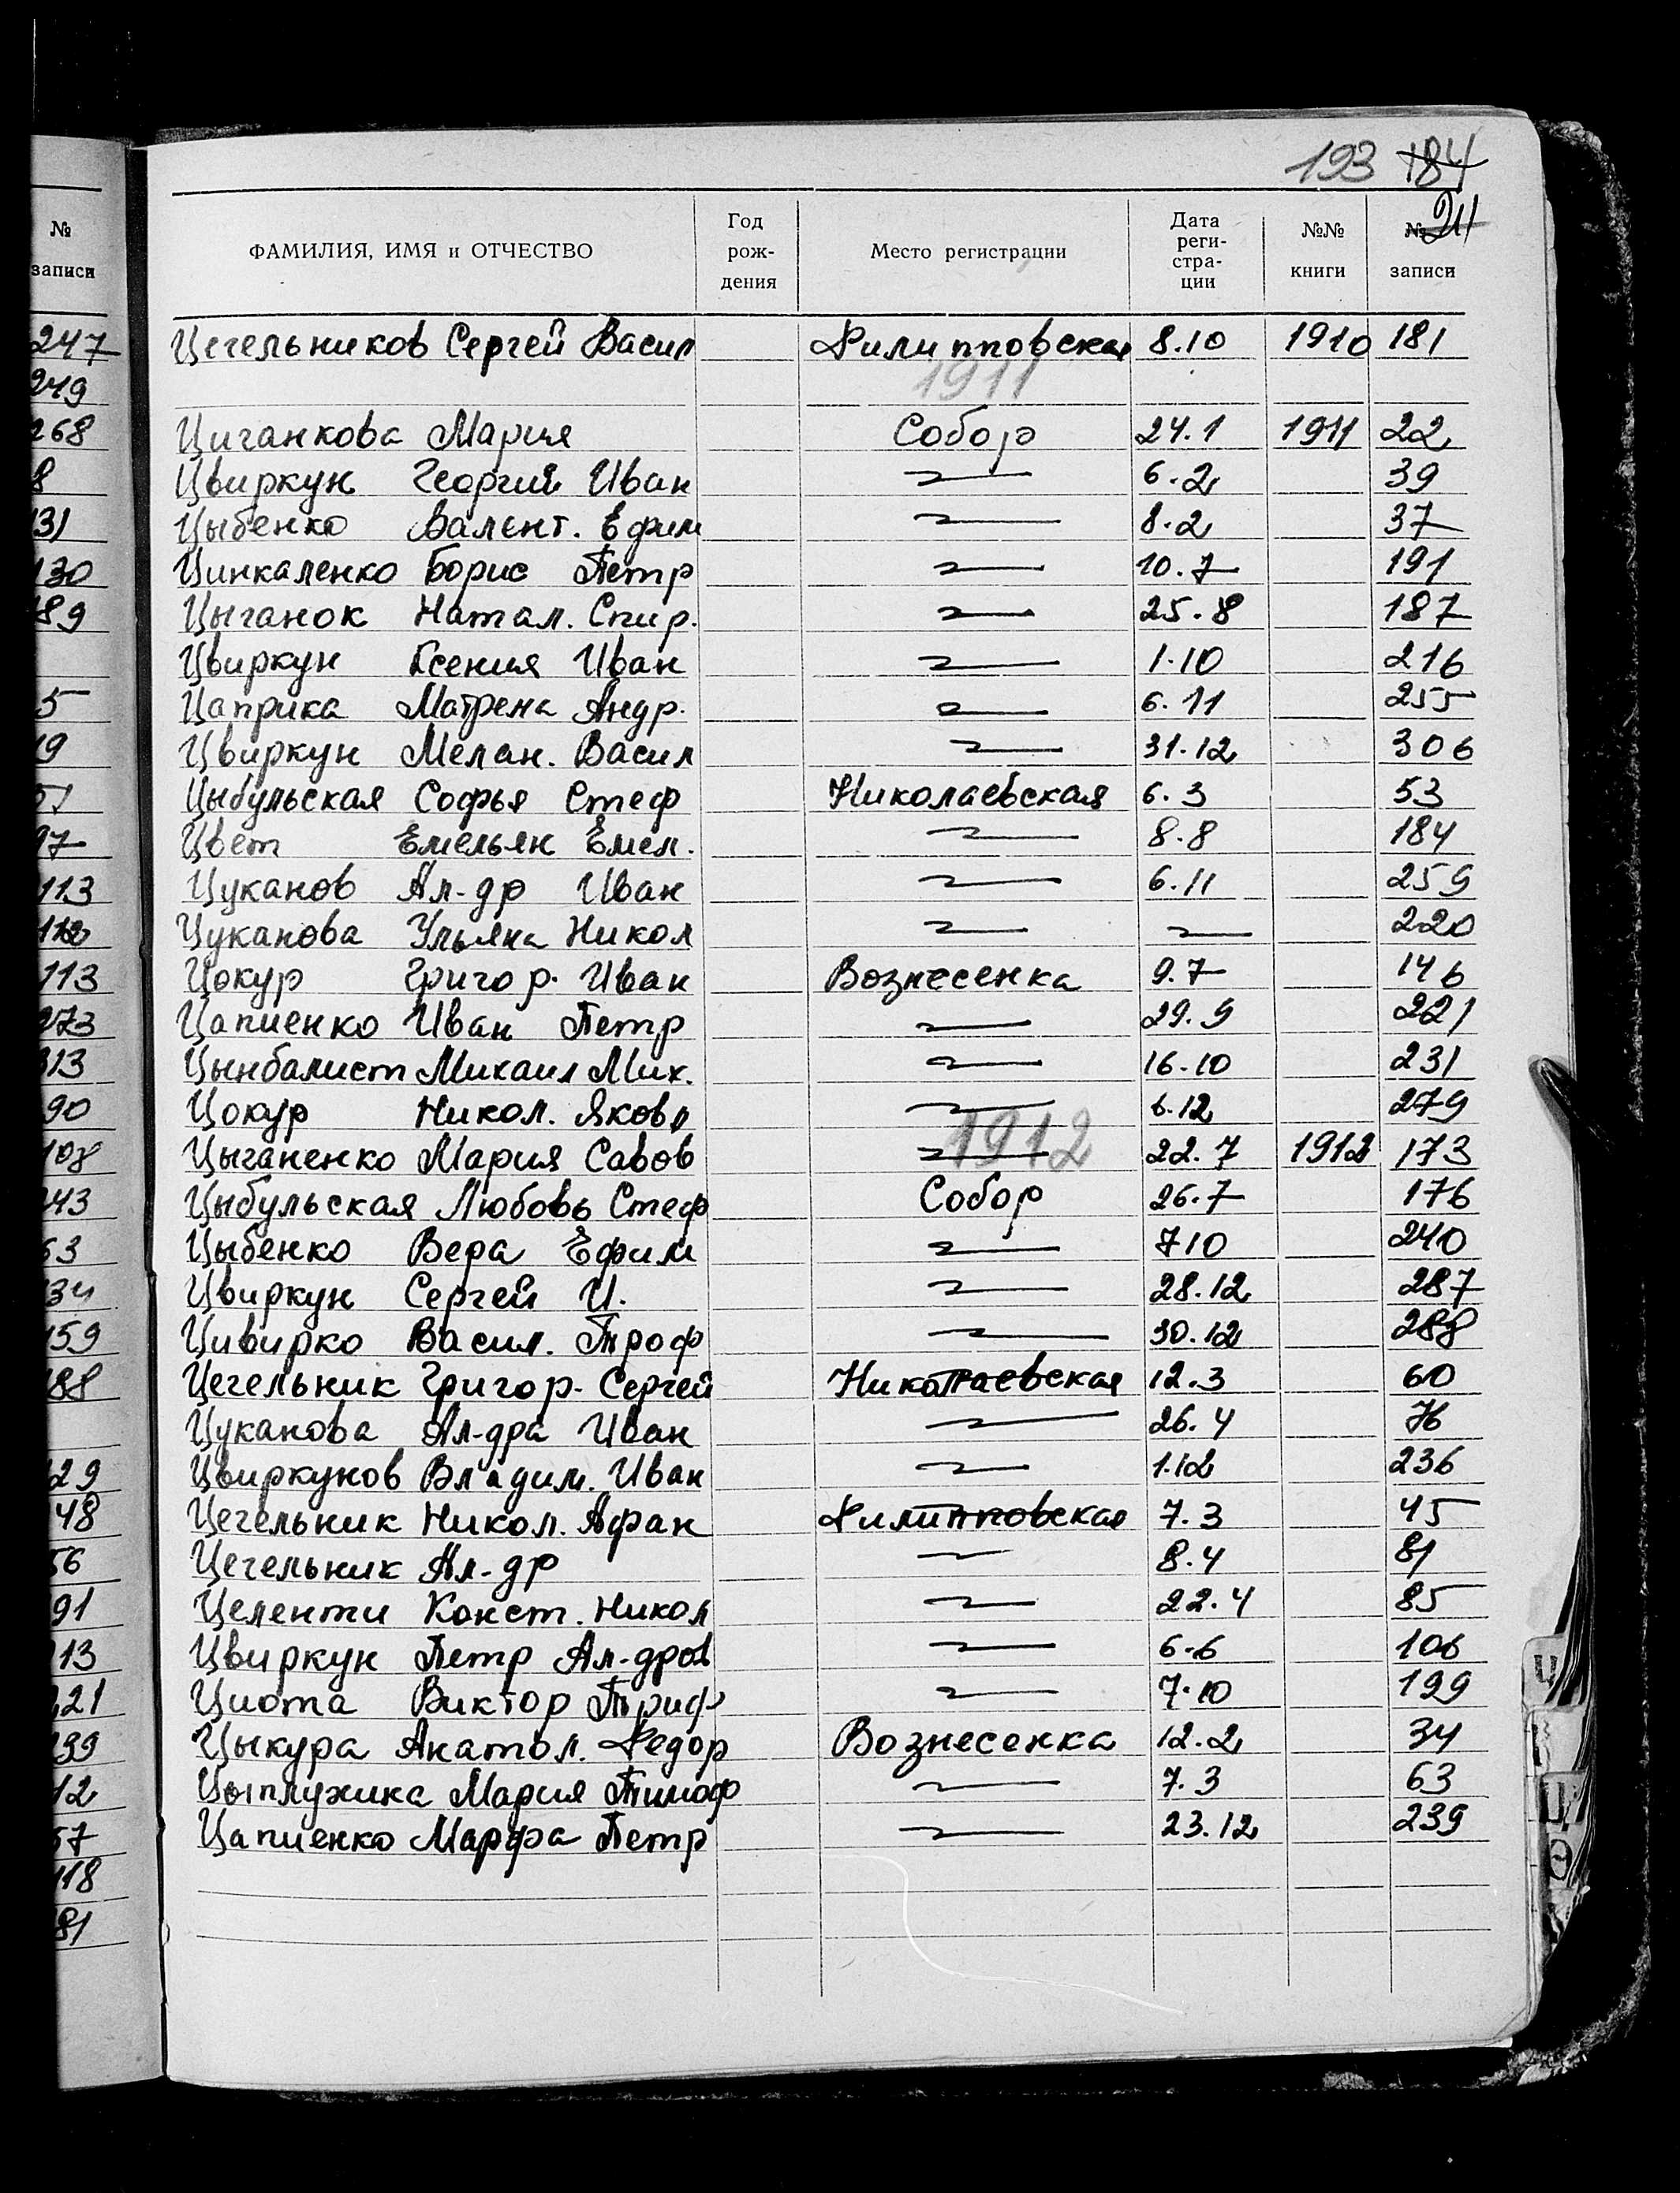 193 184
211
№ записи
ФАМИЛИЯ, ИМЯ и ОТЧЕСТВО Год рождения Место регистрации Дата регистрации №№ книги № записи
247 Цегельников Сергей Васил Филипповская 8.10 1910 181
249 1911
268 Циганкова Мария Собор 24.1 1911 22
8 Цвиркун Георгий Иван 6.2 39
31 Цыбенко Валент. Ефим 8.2 37
130 Цинкаленко Борис Петр 10.7 191
89 Цыганок Натал. Спир. 25.8 187
Цвиркун Ксения Иван 1.10 216
5 Цаприка Матрена Андр. 6.11 255
9 Цвиркун Мелан. Васил 31.12 306
Цыбульская Софья Стеф Николаевская 6.3 53
97 Цвет Емельян Емел. 8.8 184
113 Цуканов Ал-др Иван 6.11 259
112 Цуканова Ульяна Никол 220
113 Цокур Григор. Иван Вознесенка 9.7 146
273 Цапиенко Иван Петр 29.9 221
313 Цынбалист Михаил Мих. 16.10 231
90 Цокур Никол. Яковл 6.12 279
108 Цыганенко Мария Савов 1912 22.7 1912 173
43 Цыбульская Любовь Стеф Собор 26.7 176
63 Цыбенко Вера Ефим 7 10 240
34 Цвиркун Сергей И. 28.12 287
159 Цивирко Васил. Троф 30.12 288
188 Цегельник Григор. Сергей Николаевская 12.3 60
Цуканова Ал-дра Иван 26.4 76
29 Цвиркунов Владим. Иван 1.12 236
48 Цегельник Никол. Афан Филипповская 7.3 45
56 Цегельник Ал-др 8.4 81
91 Целенти Конст. Никол 22.4 85
13 Цвиркун Петр Ал-дров 6.6 106
21 Циота Виктор Триф 7.10 199
99 Цыкура Анатол. Федор Вознесенка 12.2 34
12 Цыплужика Мария Тимоф 7.3 63
57 Цапиенко Марфа Петр 23.12 239
118
81
Ц
Ц
Ө